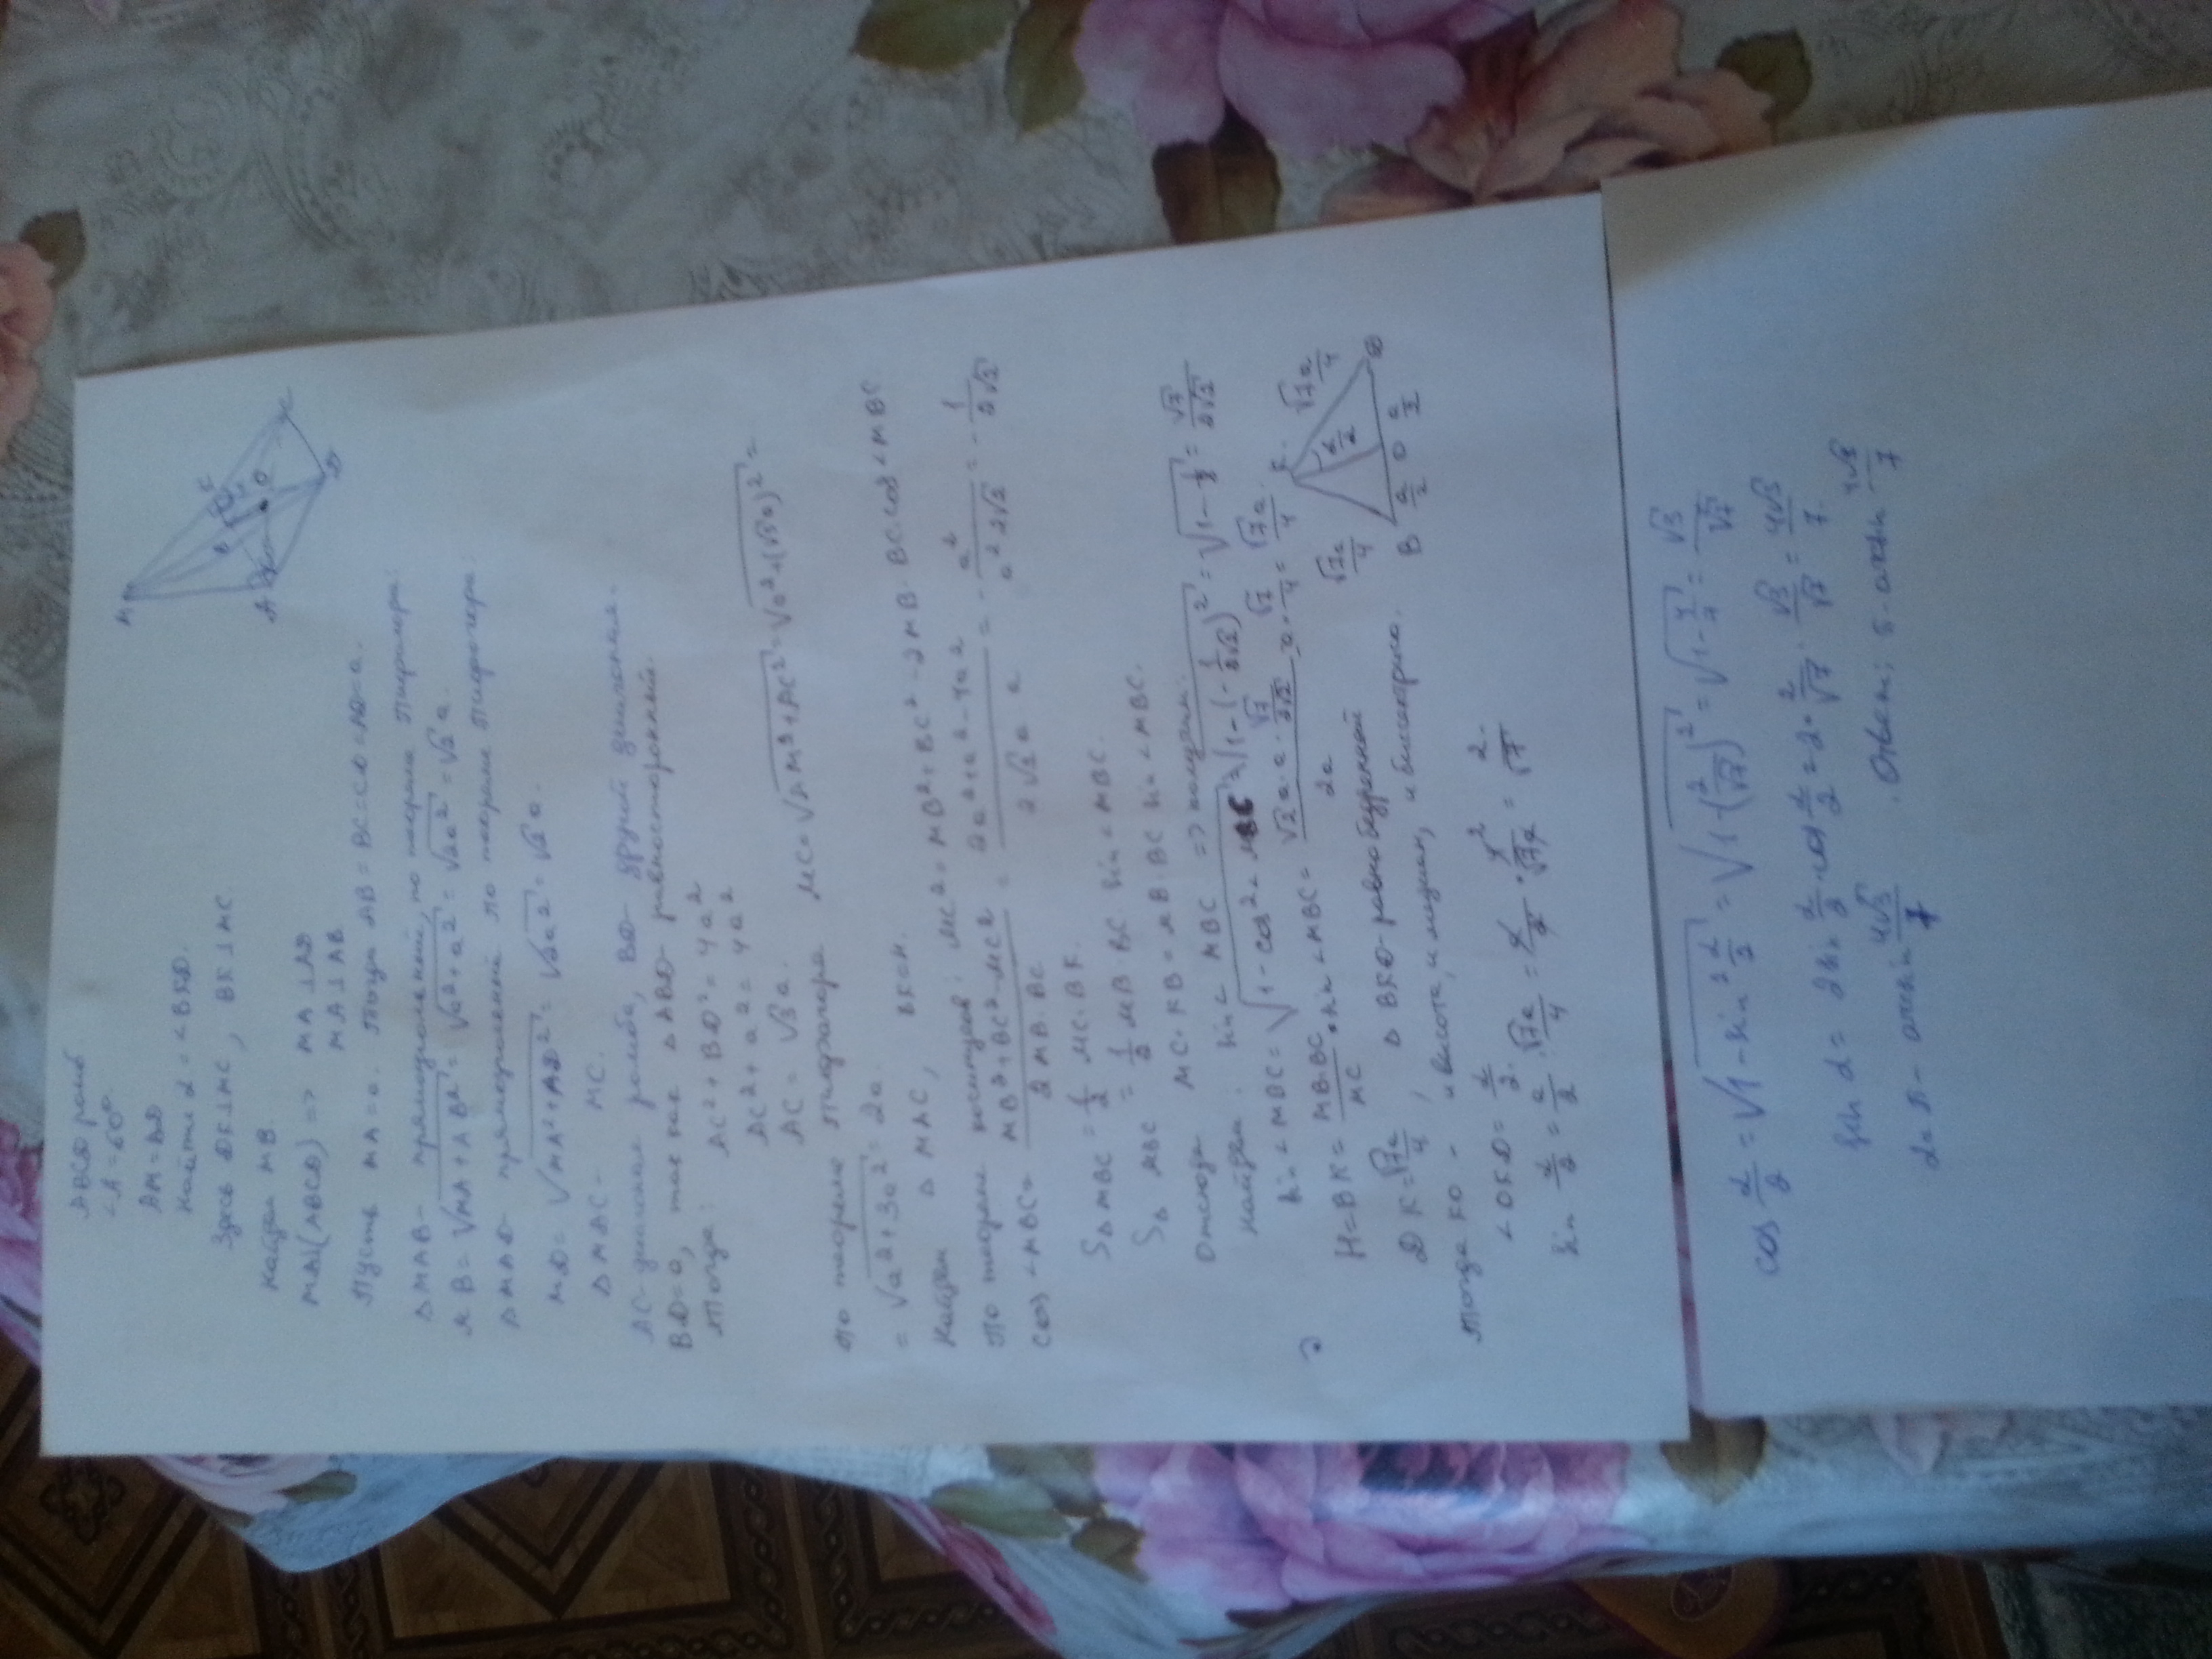 ABCD ромб
∠A = 60°
AM = AD
Найти α = ∠BKD.
Здесь DK⊥MC, BK⊥MC
Найдем MB.
MA⊥(ABCD) => MA⊥AD
MA⊥AB
Пусть MA = a. Тогда AB = BC = CD = AD = a.
△MAB - прямоугольный, по теореме Пифагора:
MB = √(MA² + AB²) = √(a² + a²) = √(2a²) = √2 a.
△MAD - прямоугольный по теореме Пифагора:
MD = √(MA² + AD²) = √(2a²) = √2 a.
△MAC - MC.
AC - диагональ ромба, BD - другой диагональ.
BD = a, так как △ABD - равносторонний.
Тогда: AC² + BD² = 4a²
AC² + a² = 4a²
AC = √3 a.
По теореме Пифагора MC = √(AM² + AC²) = √(a² + (√3a)²) =
= √(a² + 3a²) = 2a.
Найдем △MAC, BK = H.
По теореме косинусов: MC² = MB² + BC² - 2MB·BC·cos∠MBC
cos∠MBC = (MB² + BC² - MC²)/(2MB·BC) = (2a² + a² - 4a²)/(2√2 a a) = - a²/(a² 2√2) = - 1/(2√2)
S△MBC = 1/2 MC·BK.
S△MBC = 1/2 MB·BC sin∠MBC.
Отсюда MC·KB = MB·BC sin∠MBC.
Найдем: sin∠MBC => получим:
sin∠MBC = √(1 - cos²∠MBC) = √(1 - (-1/(2√2))²) = √(1 - 1/8) = √7/(2√2)
H = BK = MB·BC/MC · sin∠MBC = (√2a·a·√7/(2√2))/2a = a·√7/4 = √7a/4.
DK = √7a/4, △BKD - равнобедренный
Тогда KO - и высота, и медиан, и биссектриса.
∠OKD = α/2.
sin α/2 = a/2 : √7a/4 = a/2 · 4/(√7a) = 2/√7.
M
A
B
K
O
D
C
K
α/2
√7a/4
√7a/4
B
a/2
O
a/2
D
cos α/2 = √(1 - sin² α/2) = √(1 - (2/√7)²) = √(1 - 4/7) = √3/√7
sin α = 2sin α/2 · cos α/2 = 2 · 2/√7 · √3/√7 = 4√3/7.
α = π - arcsin 4√3/7. Ответ: π - arcsin 4√3/7